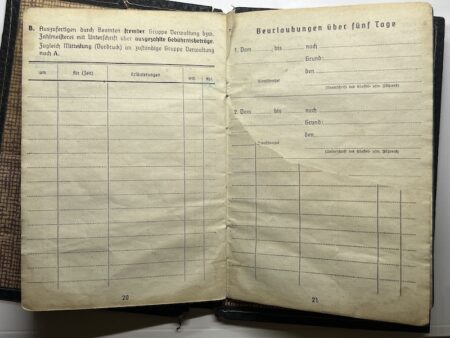 B. Auszufertigen durch Beamten fremder Gruppe Verwaltung bzw.
Zahlmeisterei mit Unterschrift über ausgezahlte Gebührnisbeträge.
Zugleich Mitteilung (Vordruck) an zuständige Gruppe Verwaltung
nach A.
am
für (Zeit)
Erläuterungen
RM.
Rpf.
20
Beurlaubungen über fünf Tage
1. Vom bis nach
Grund:
den
Dienststempel
(Unterschrift des
2. Vom bis nach
Grund:
den
Dienststempel
(Unterschrift des
21